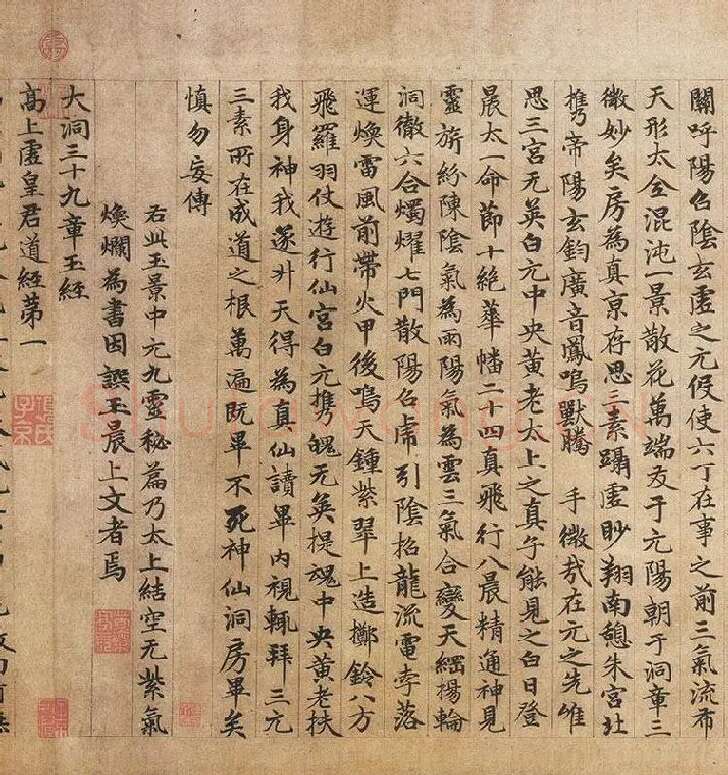 關呼陽召陰玄虛之元假使六丁在事之前三氣流布
天形太混沌一景散花萬端友于元陽朝于洞章三
微妙矣房為真京存思三素躡虛眇翔南憩朱宮北
攜帝陽玄鈞廣音鳳鳴獸騰手微哉在元之先唯
思三宮无英白元中央黃老太上之真能見之白日登
晨太一命節十絕華幡二十四真飛行八晨精通神見
靈旂紛陳陰氣為雨陽氣為雲三氣合變天楊輪
洞徹六合燭燿七門散陽召虎引陰招龍流電落
運煥雷風前帶火甲後鳴天鍾紫翠上造擲鈴八方
飛羅羽仗遊行仙宮白元攜魄无英提魂中央黃老扶
我身神我遂升天得為真仙讀畢內視輒拜三元
三素所在成道之根萬遍既畢不死神仙洞房畢矣
慎勿妄傳
右此玉景中元九靈秘篇乃太上結空无紫氣
煥爛為書因譔玉晨上文者焉
大洞三十九章玉經
高上虛皇君道經第一
項氏子京
Shufawang.CN